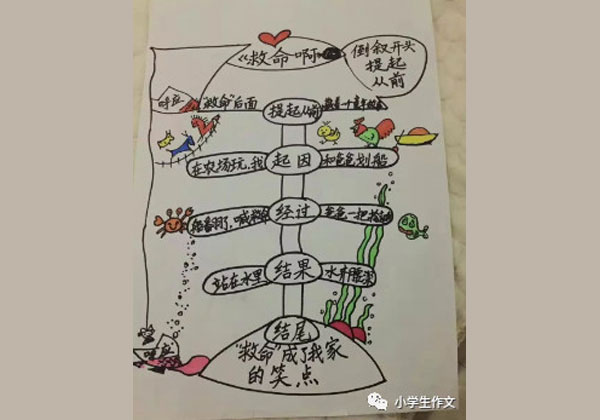 《救命啊》
倒叙开头
提起
从前
呼应
"救命"后面
提起从前
在农场玩,我
起因
和爸爸划船
船翻了,喊救命
经过
爸爸一把
站在水里
结果
水齐腰深
结尾
呼应
"救命"成了我家
的笑点
小学生作文